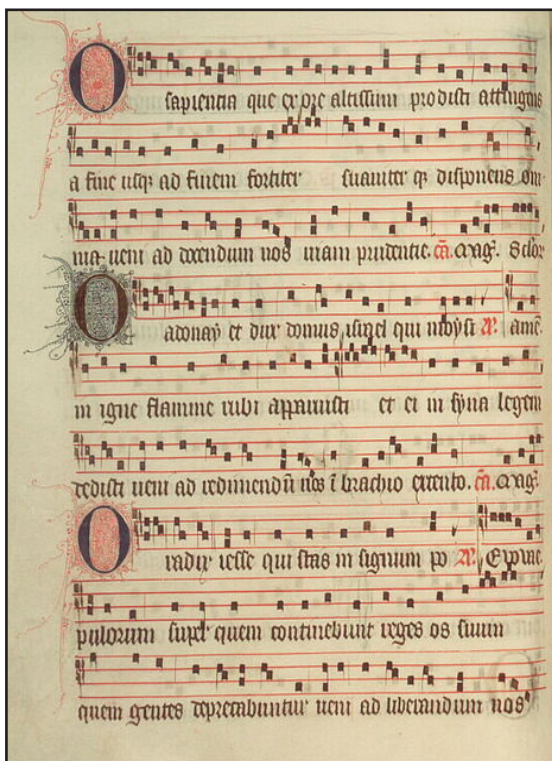 O sapientia que ex ore altissimi prodisti attingens
a fine usq; ad finem fortiter suaviter q; disponens om
nia veni ad docendum nos viam prudentie. cā. Mag̃.
O adonay et dux domus israel qui moysi amē
in igne flamme rubi apparuisti et ei in syna legem
dedisti veni ad redimendū nos ī brachio extento. cā. Mag̃
O radix iesse qui stas in signum po
pulorum super quem continebunt reges os suum
quem gentes deprecabuntur veni ad liberandum nos